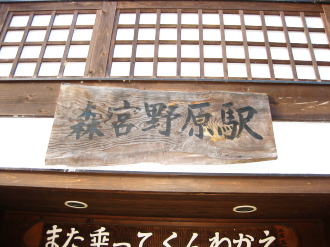 森宮野原駅
また乗ってくんわかえ